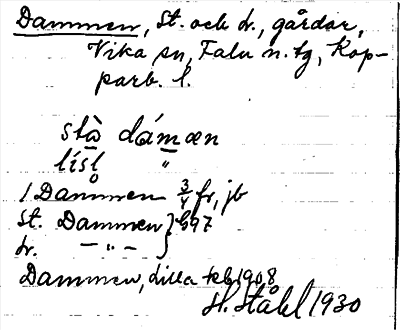 Dammen, St. och L., gårdar,
Vika sn, Falu n. tg, Kop-
parb. l.
stò dámæn
lisl "
1 Dammen 3/4 fr, jb
St. Dammen } 697
L. — " —
Dammen, Lilla kb 1908
H. Ståhl 1930